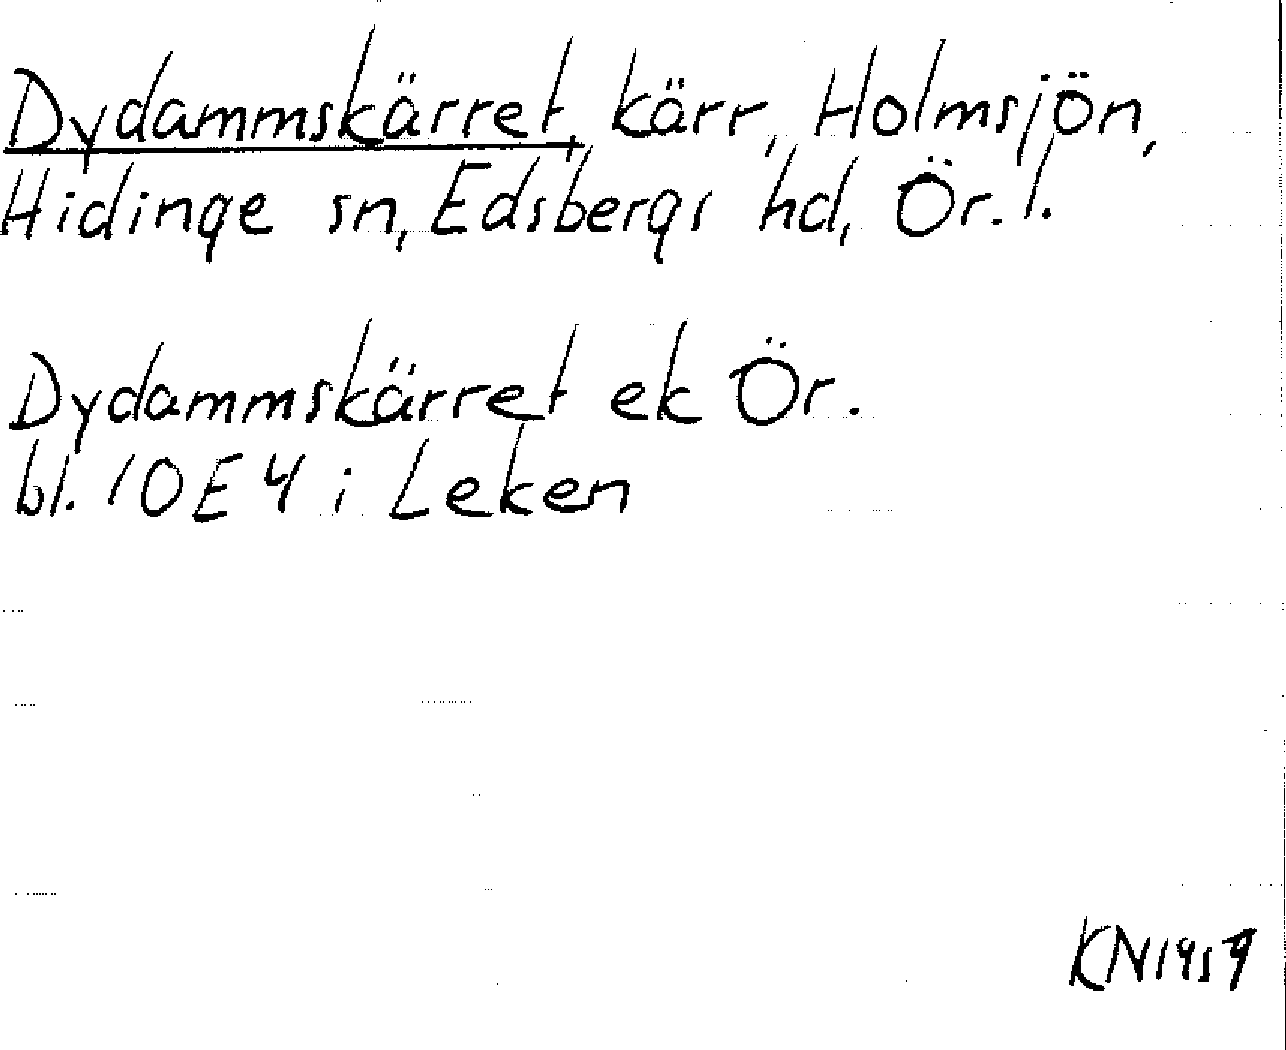 Dydammskärret, kärr, Holmsjön,
Hidinge sn, Edsbergs hd, Ör. l.
Dydammskärret ek Ör.
bl. 10E4 i Leken
KN1959